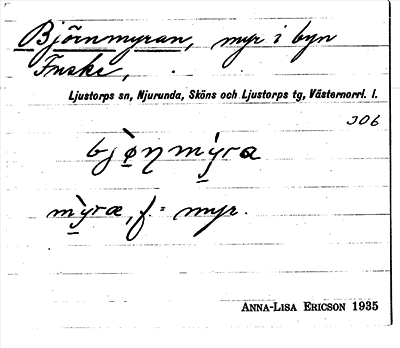 Björnmyran, myr i byn
Fuske,
Ljustorps sn, Njurunda, Sköns och Ljustorps tg, Västernorrl. l.
306
bjø̀ŋmỳra
mỳræ, f. = myr.
ANNA-LISA ERICSON 1935